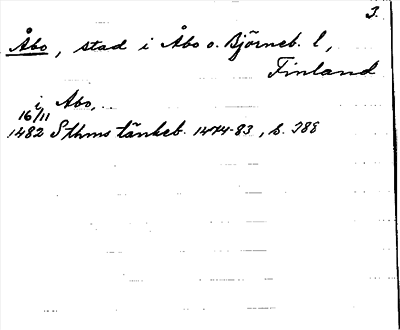 3.
Åbo, stad i Åbo o. Björneb. l,
Finland
i Åbo,..
16/11
1482 Sthms tänkeb. 1474-83, s. 388